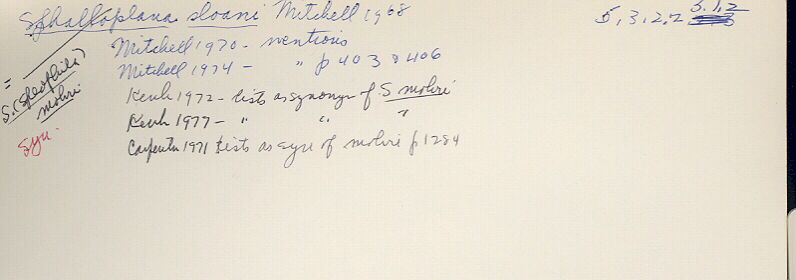 Sphalloplana sloani Mitchell 1968 5, 3, 2, 2 5.1,2
Mitchell 1970 - mentions
Mitchell 1974 - " p 403 & 406
= S. (Speophila) mohri
Kenk 1972 - lists as synonym of S mohri
Kenk 1977 - " " "
Syn.
Carpenter 1971 lists as syn of mohri p 1284